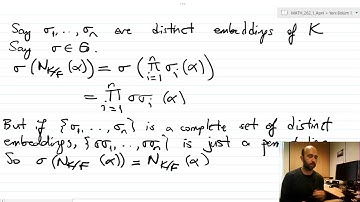 Say σ₁,..., σₙ are distinct embeddings of K
Say σ ∈ G.
σ(N_{K/F}(α)) = σ(∏_{i=1}^{n} σᵢ(α))
= ∏_{i=1}^{n} σσᵢ(α)
But if {σ₁,..., σₙ} is a complete set of distinct
embeddings, {σσ₁,..., σσₙ} is just a
So σ(N_{K/F}(α)) = N_{K/F}(α)